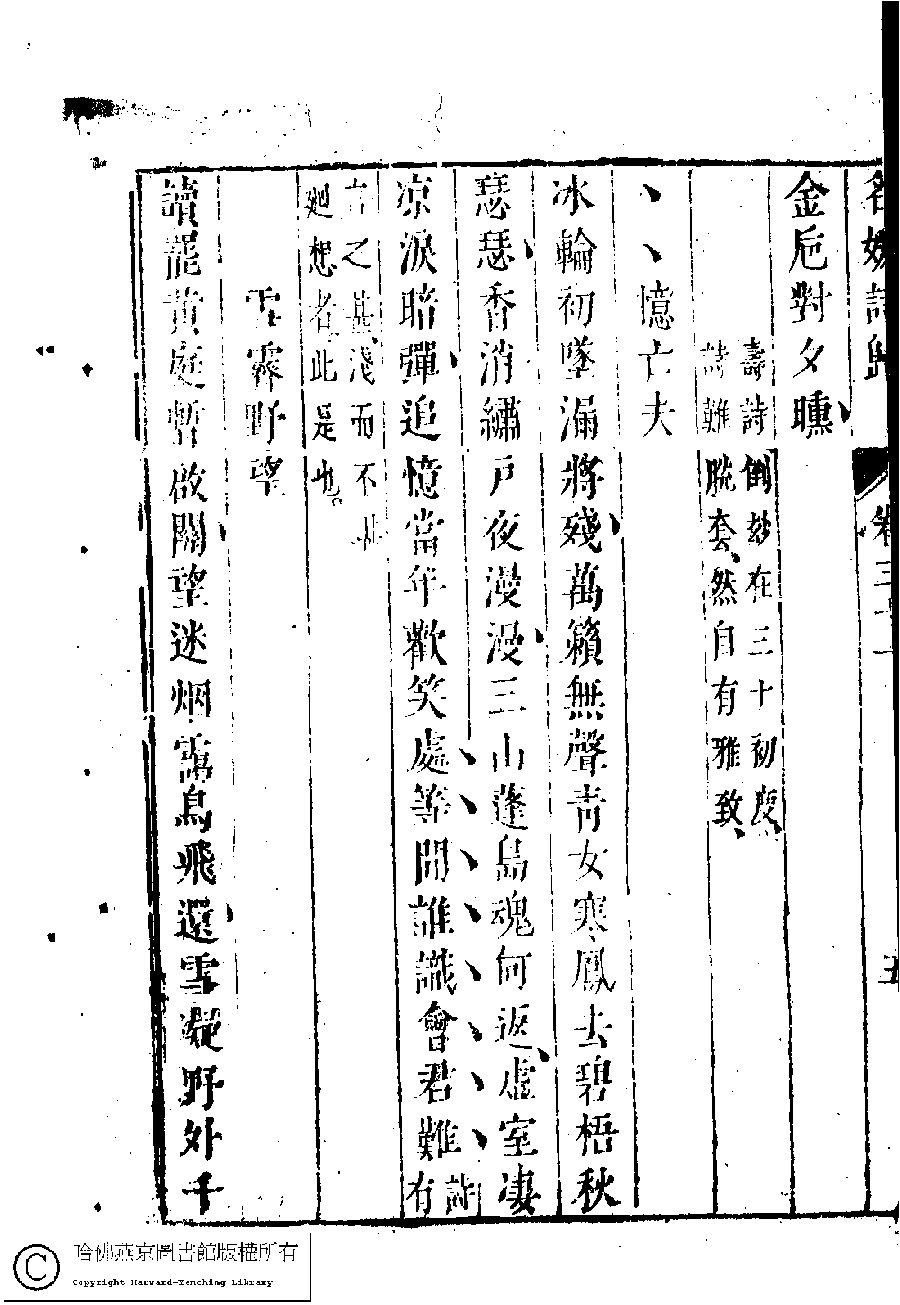 名媛詩歸 卷三十一 五
金巵對夕曛
壽詩倒妙在三十初度
詩難脫套然自有雅致
憶亡夫
冰輪初墜漏將殘萬籟無聲青女寒鳳去碧梧秋
瑟瑟香消繡戶夜漫漫三山蓬島魂何返虛室凄
凉淚暗彈追憶當年歡笑處等閒誰識會君難
詩有
言之甚淺而不
廻想者此是也
雪霽野望
讀罷黃庭暫啟關望迷烟靄鳥飛還雪凝野外千
哈佛燕京圖書館版權所有
Copyright Harvard-Yenching Library